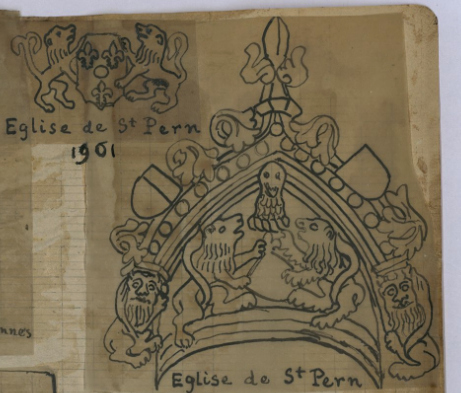 Eglise de St Pern
1901
nnes
Eglise de St Pern